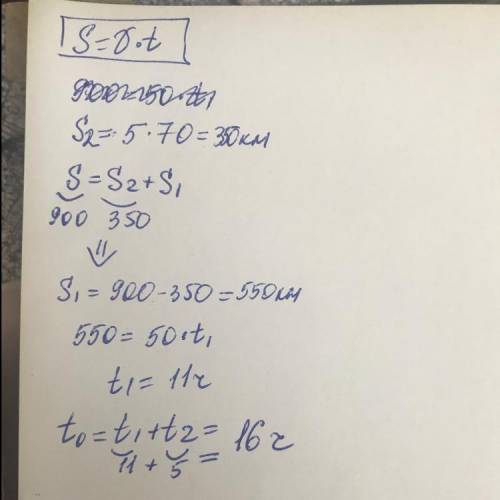 S = v · t
S₂ = 5 · 70 = 350км
S = S₂ + S₁
900 350
⇓
S₁ = 900 - 350 = 550км
550 = 50 · t₁
t₁ = 11ч
t₀ = t₁ + t₂ = 16ч
11 + 5 =